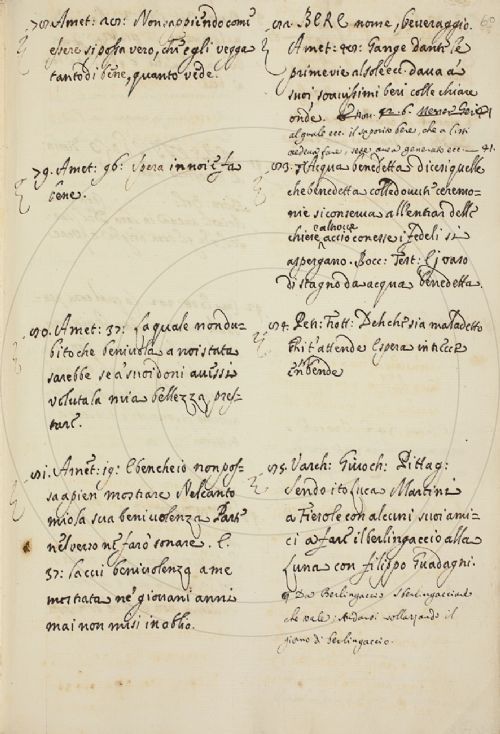 78. Amet: 25: Non sappiendo come
essere si possa vero, ch'egli vegga
tanto di bene, quanto vede.
79. Amet: 96: Spera in noi e fa
bene.
80. Amet: 37: La quale non du-
bito che benivola a noi stata
sarebbe se à suoi doni avesse
voluta la mia bellezza pres-
tare.
81. Amet: 19: E bencheio non pos-
sa a pien mostrare Nel canto
mio la sua benivolenza Parte
nel verso ne farò sonare. E.
37: La cui benivolenza a me
mostrata ne giovani anni
mai non misi in oblio.
60
82. BERE nome, beveraggio.
Amet: 48: Gange dante le
prime vie al sole ecc. dava à
suoi soavissimi beri colle chiare
onde.
al quale ecc. il saporito bere, che a
generato ecc. 41.
83. Acqua benedetta dicesi quelle
che benedetta colle dovute ceremo-
nie si conserva all'entrar delle
chiese acciocon esse i fedeli si
aspergano. Bocc: Test: E j vaso
di stagno da acqua benedetta.
84. Pet: Frott: Deh che sia maladetto
Chi t'attende E spera in trecce
en bende
85. Varch: Giuoch: Pittag:
Sendo ito Luca Martini
a Fiesole con alcuni suoi ami-
ci a fare il berlingaccio alla
Luna con Filippo Guadagni.
Da Berlingaccio Sberlingacciare
che vale, Andarsi sollazzando il
giorno di berlingaccio.